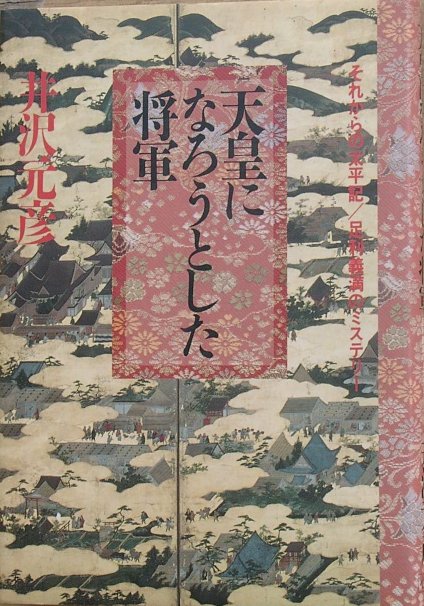 それからの太平記/足利義満のミステリー
天皇に
なろうとした
将軍
井沢元彦